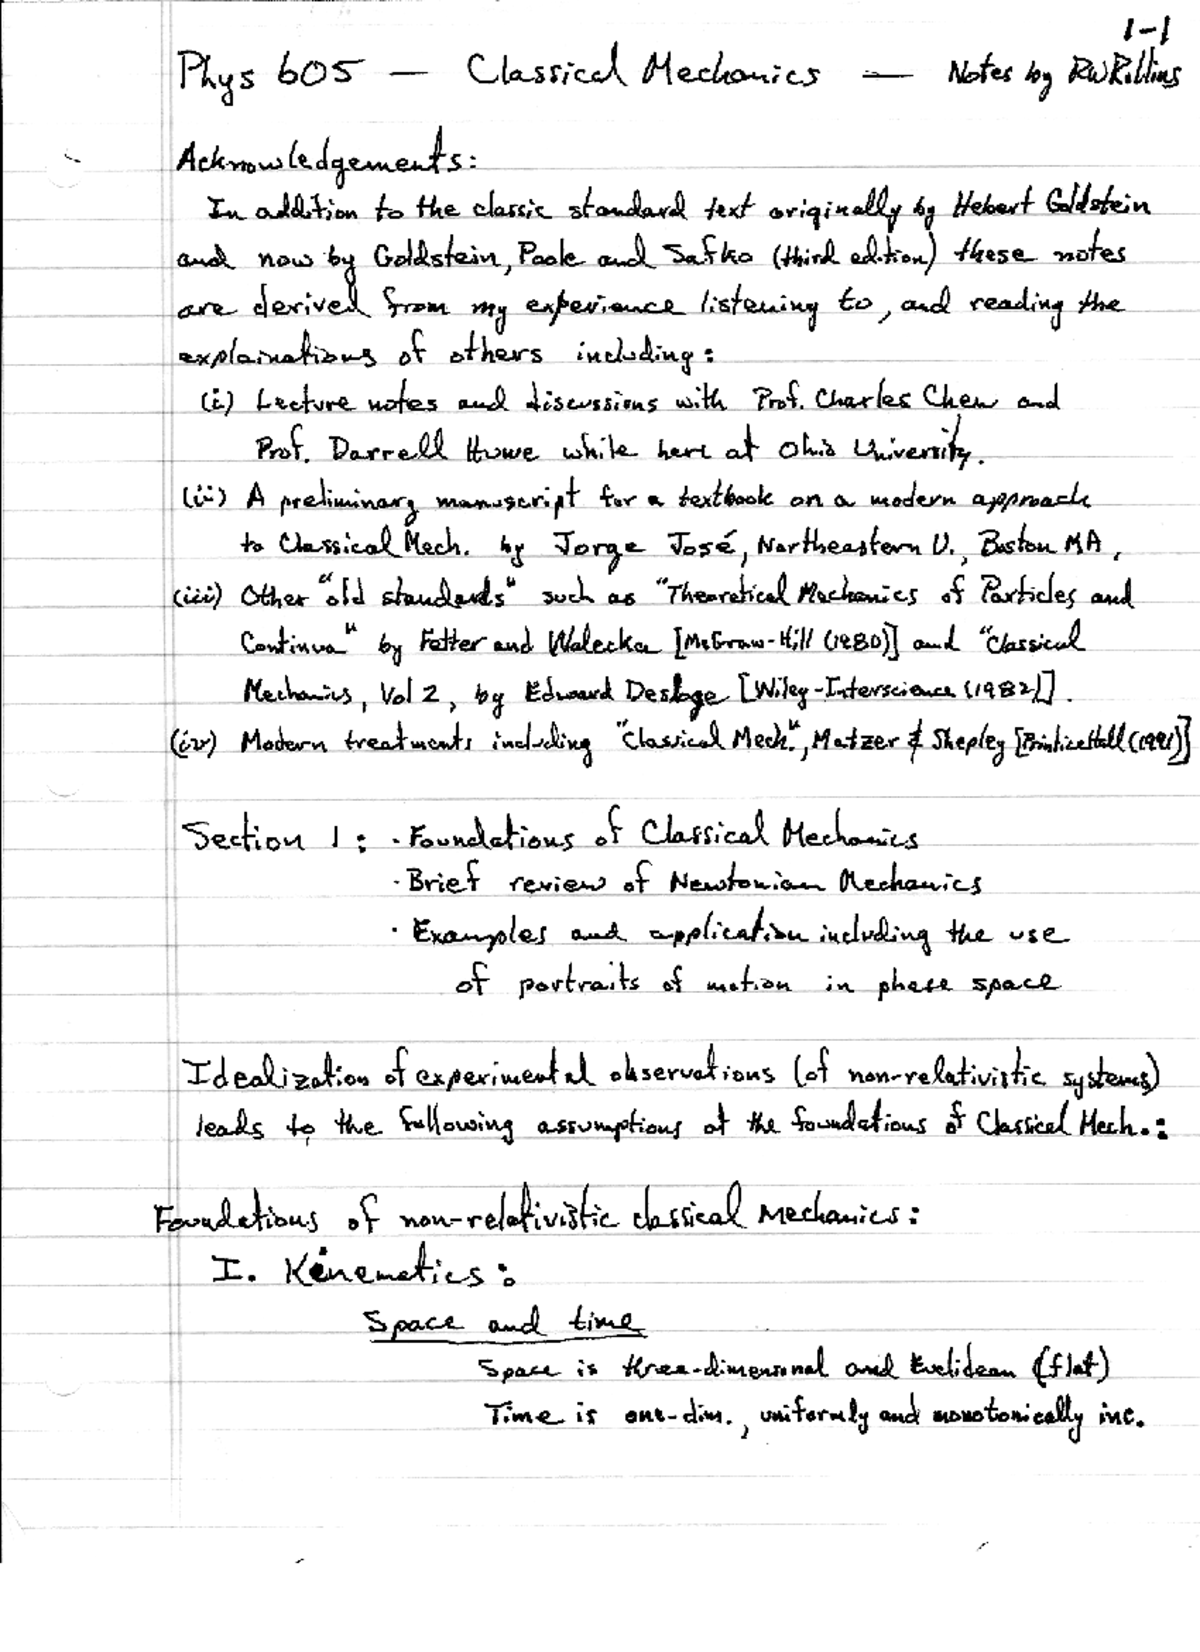 1-1
Phys 605 — Classical Mechanics — Notes by RWRollins
Acknowledgements:
In addition to the classic standard text originally by Hebert Goldstein
and now by Goldstein, Poole and Safko (third edition) these notes
are derived from my experience listening to, and reading the
explainations of others including:
(i) Lecture notes and discussions with Prof. Charles Chen and
Prof. Darrell Huwe while here at Ohio University.
(ii) A preliminary manuscript for a textbook on a modern approach
to Classical Mech. by Jorge José, Northeastern U., Boston MA,
(iii) Other "old standards" such as "Theoretical Mechanics of Particles and
Continua" by Fetter and Walecka [McGraw-Hill (1980)] and "Classical
Mechanics, Vol 2, by Edward Desloge [Wiley-Interscience (1982)].
(iv) Modern treatments including "Classical Mech.", Matzer & Shepley [Printice Hall (1991)]
Section 1: · Foundations of Classical Mechanics
· Brief review of Newtonian Mechanics
· Examples and application including the use
of portraits of motion in phase space
Idealization of experimental observations (of non-relativistic systems)
leads to the following assumptions at the foundations of Classical Mech.:
Foundations of non-relativistic classical Mechanics:
I. Kinematics:
Space and time
Space is three-dimensional and Euclidean (flat)
Time is one-dim., uniformly and monotonically inc.